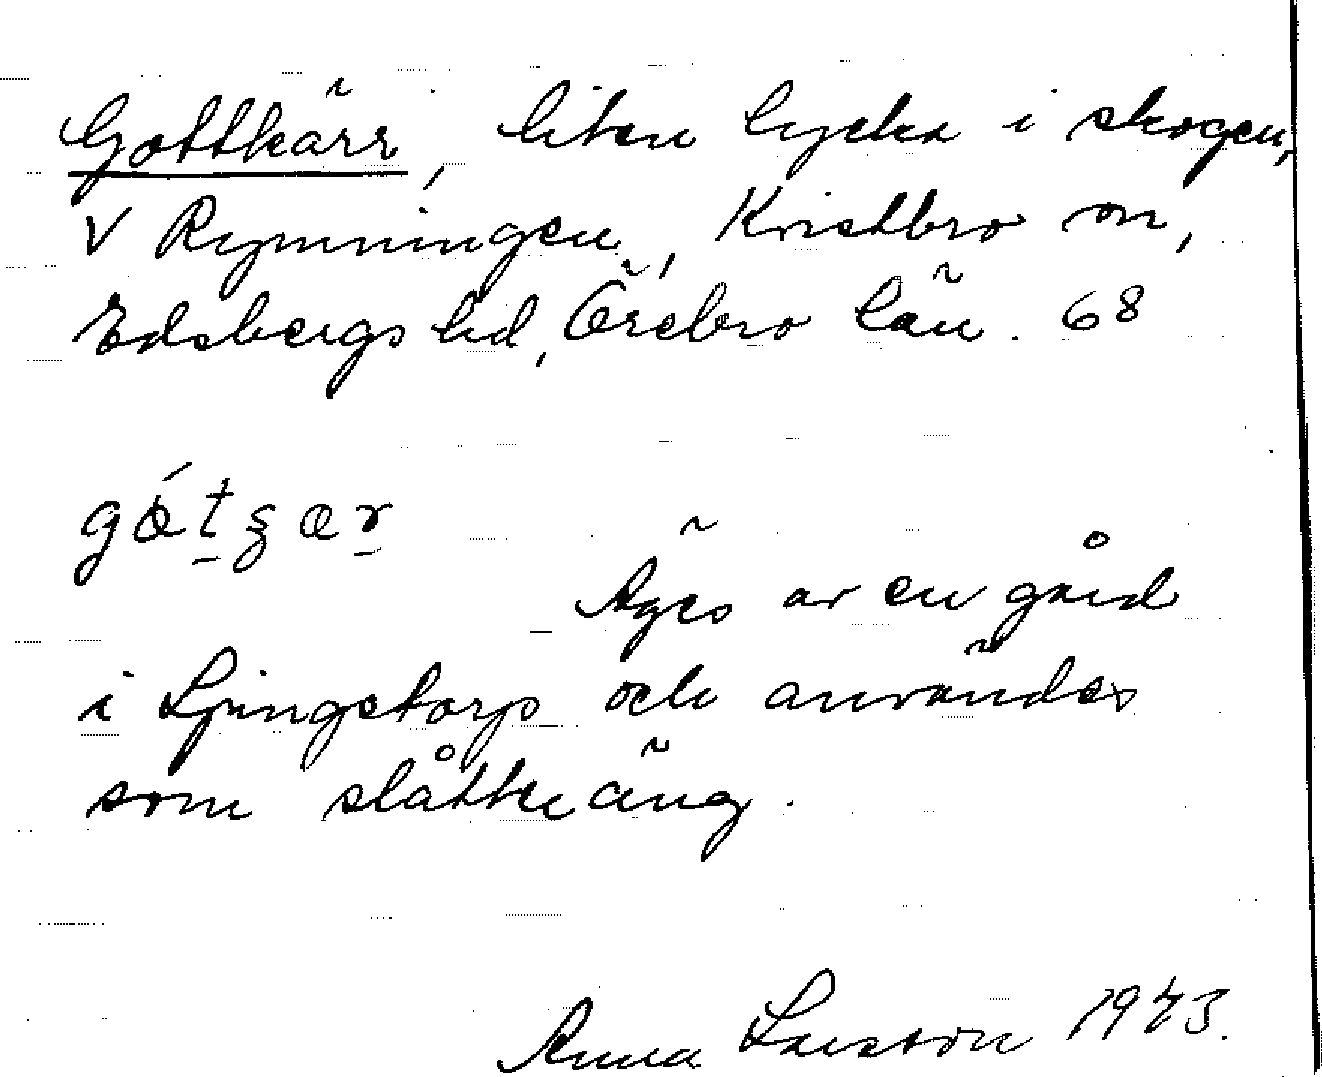 Gottkärr, liten lycka i skogen,
V Rymningen, Knistbro sn,
Edsbergs hd, Örebro län. 68
Äges av en gård
i Ljungstorp och användes
som slåtteräng.
Anna Larsson 1943.